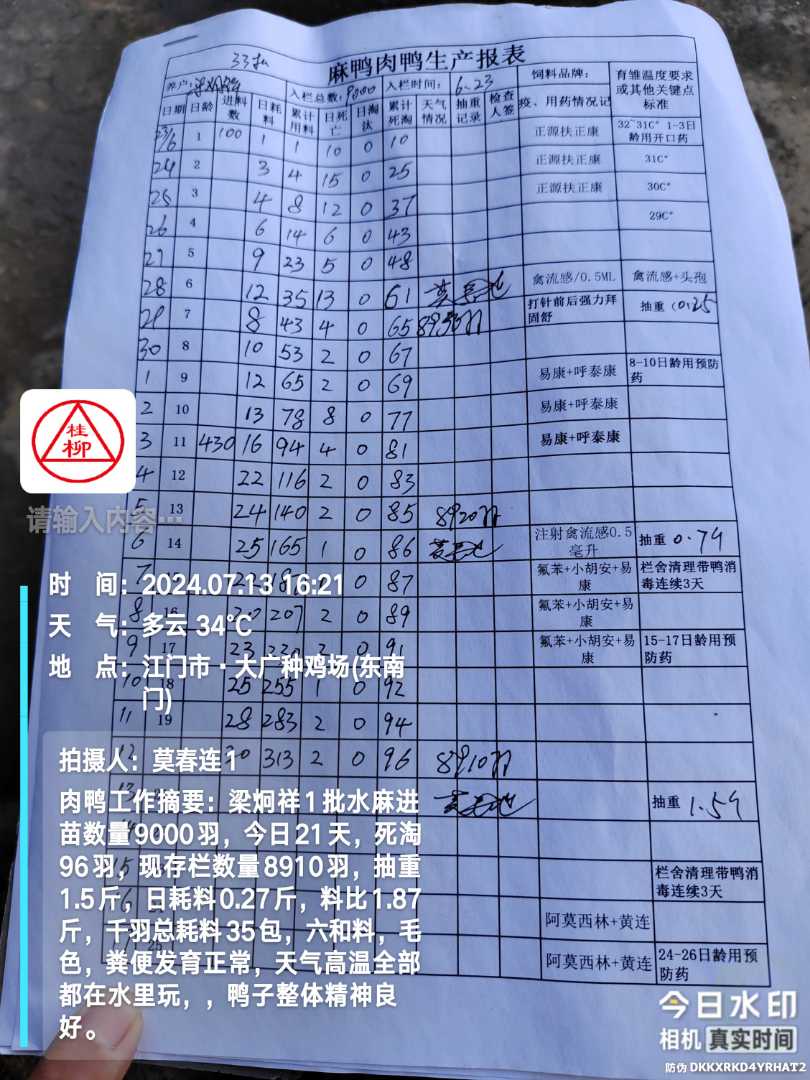 33批
麻鸭肉鸭生产报表
养户: 入栏总数: 9000 入栏时间: 6.23 饲料品牌: 育雏温度要求或其他关键点标准
日期 日龄 进料数 日耗料 累计用料 日死亡 日淘汰 累计死淘 天气情况 抽重记录 检查人签 疫、用药情况记
23/6 1 100 1 1 10 0 10 正源扶正康 32~31C° 1-3日龄用开口药
24 2 3 4 15 0 25 正源扶正康 31C°
25 3 4 8 12 0 37 正源扶正康 30C°
26 4 6 14 6 0 43 29C°
27 5 9 23 5 0 48
28 6 12 35 13 0 61 禽流感/0.5ML 禽流感+头孢
29 7 8 43 4 0 65 8950羽 打针前后强力拜固舒 抽重 0.25
30 8 10 53 2 0 67
1 9 12 65 2 0 69 易康+呼泰康 8-10日龄用预防药
2 10 13 78 8 0 77 易康+呼泰康
3 11 430 16 94 4 0 81 易康+呼泰康
4 12 22 116 2 0 83
5 13 24 140 2 0 85 8920羽
6 14 25 165 1 0 86 注射禽流感0.5毫升 抽重 0.74
7 2 0 87 氟苯+小胡安+易康 栏舍清理带鸭消毒连续3天
8 16 20 207 2 0 89 氟苯+小胡安+易康
9 17 23 0 91 氟苯+小胡安+易康 15-17日龄用预防药
10 18 25 255 1 0 92
11 19 28 283 2 0 94
12 30 313 2 0 96 8910羽
抽重 1.54
栏舍清理带鸭消毒连续3天
阿莫西林+黄连
阿莫西林+黄连 24-26日龄用预防药
桂柳
请输入内容…
时 间：2024.07.13 16:21
天 气：多云 34℃
地 点：江门市·大广种鸡场(东南
门)
拍摄人：莫春连1
肉鸭工作摘要：梁炯祥1批水麻进
苗数量9000羽，今日21天，死淘
96羽，现存栏数量8910羽，抽重
1.5斤，日耗料0.27斤，料比1.87
斤，千羽总耗料35包，六和料，毛
色，粪便发育正常，天气高温全部
都在水里玩，，鸭子整体精神良
好。
今日水印
相机 真实时间
防伪 DKKXRKD4YRHAT2